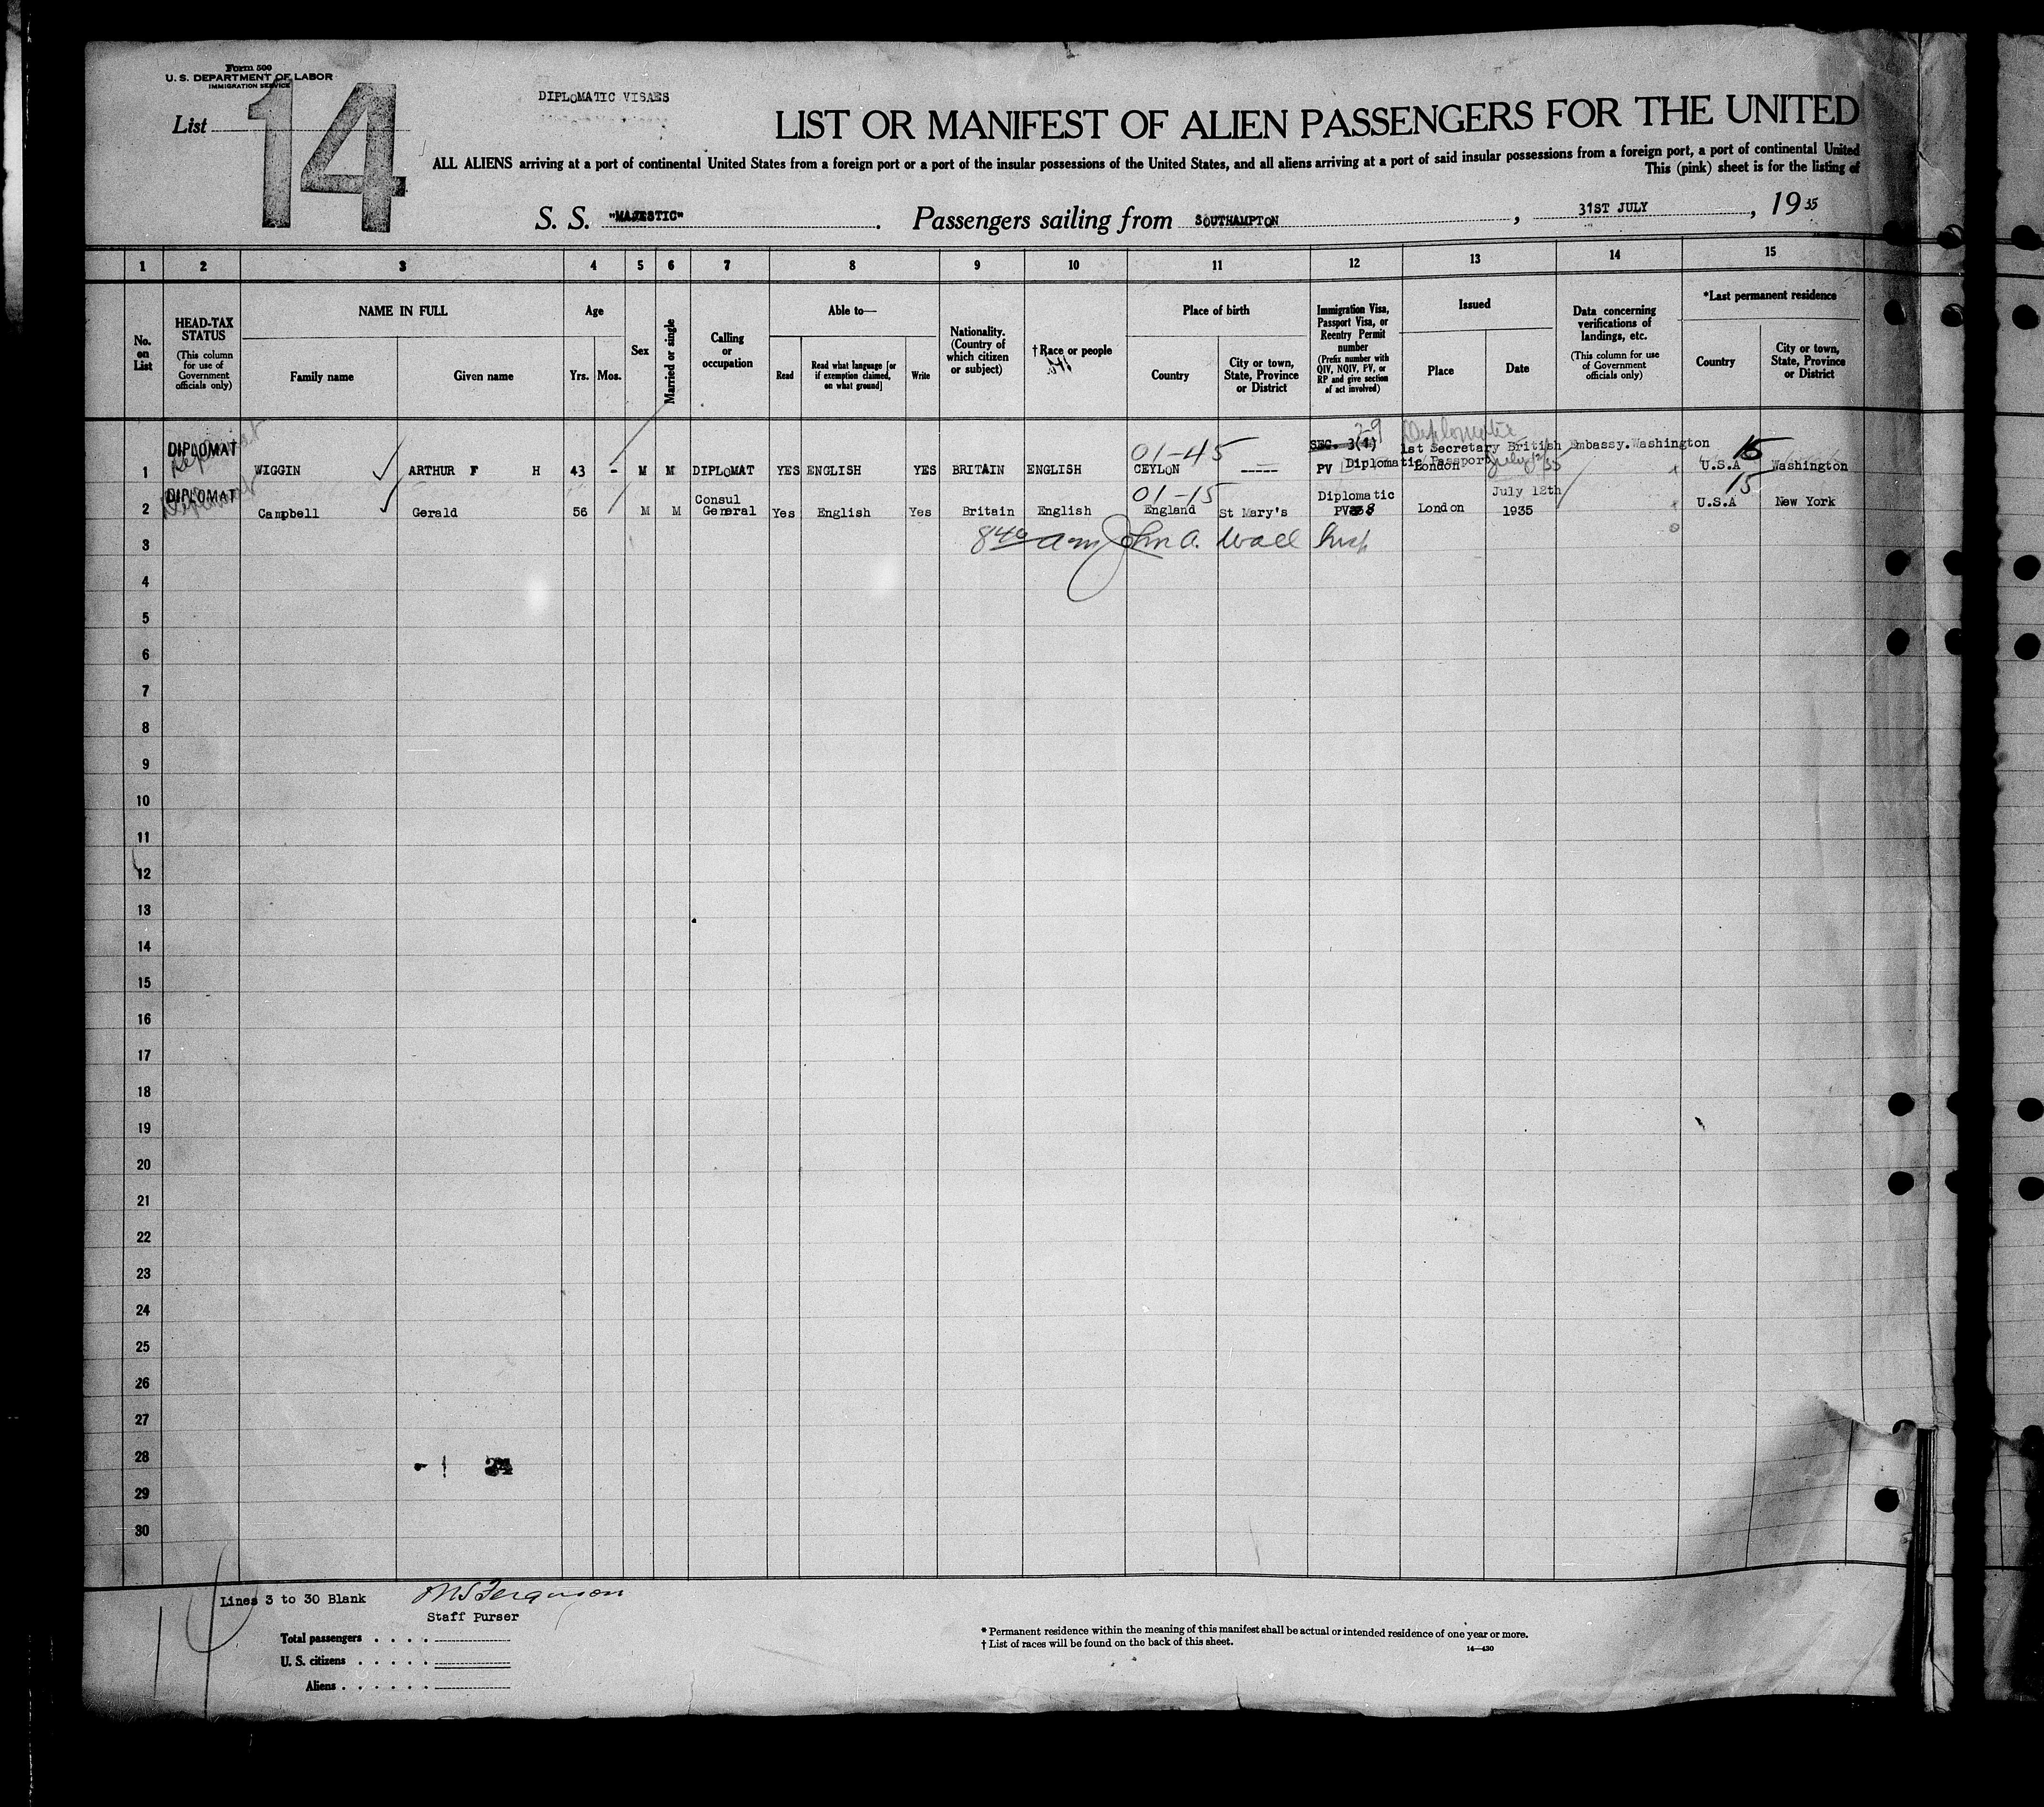 Form 500
U. S. DEPARTMENT OF LABOR
IMMIGRATION SERVICE
List 14
DIPLOMATIC VISAES
LIST OR MANIFEST OF ALIEN PASSENGERS FOR THE UNITED
ALL ALIENS arriving at a port of continental United States from a foreign port or a port of the insular possessions of the United States, and all aliens arriving at a port of said insular possessions from a foreign port, a port of continental United
This (pink) sheet is for the listing of
S. S. "MAJESTIC". Passengers sailing from SOUTHAMPTON, 31ST JULY, 1935
1 2 3 4 5 6 7 8 9 10 11 12 13 14 15
No. on List
HEAD-TAX STATUS
(This column for use of Government officials only)
NAME IN FULL
Family name
Given name
Age
Yrs. Mos.
Sex
Married or single
Calling or occupation
Able to—
Read
Read what language [or if exemption claimed, on what ground]
Write
Nationality. (Country of which citizen or subject)
†Race or people
Place of birth
Country
City or town, State, Province or District
Immigration Visa, Passport Visa, or Reentry Permit number
(Prefix number with QIV, NQIV, PV, or RP and give section of act involved)
Issued
Place
Date
Data concerning verifications of landings, etc.
(This column for use of Government officials only)
*Last permanent residence
Country
City or town, State, Province or District
29 Diplomatic
DIPLOMAT 01-45 SEC. 3(1) 1st Secretary British Embassy.Washington 15
Diplomatic Passport
1 WIGGIN ARTHUR F H 43 - M M DIPLOMAT YES ENGLISH YES BRITAIN ENGLISH CEYLON ----- PV London July 12/35 U.S.A Washington
DIPLOMAT Consul 01-15 Diplomatic July 12th 15
2 Campbell Gerald 56 M M General Yes English Yes Britain English England St Mary's PV 8 London 1935 U.S.A New York
3 840 am John A. Wall Insp
4
5
6
7
8
9
10
11
12
13
14
15
16
17
18
19
20
21
22
23
24
25
26
27
28
29
30
14
Lines 3 to 30 Blank
Ferguson
Staff Purser
Total passengers . . . .
U. S. citizens . . . . .
Aliens . . . . . .
* Permanent residence within the meaning of this manifest shall be actual or intended residence of one year or more.
† List of races will be found on the back of this sheet.
14—430